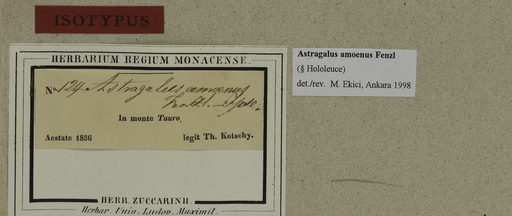 ISOTYPUS
HERBARIUM REGIUM MONACENSE.
No. 124. Astragalus amoenus
Fenzl.
In monte Tauro.
Aestate 1836 legit Th. Kotschy.
HERB. ZUCCARINII.
Herbar. Univ. Ludov. Maximil.
Astragalus amoenus Fenzl
(§ Hololeuce)
det./rev. M. Ekici, Ankara 1998